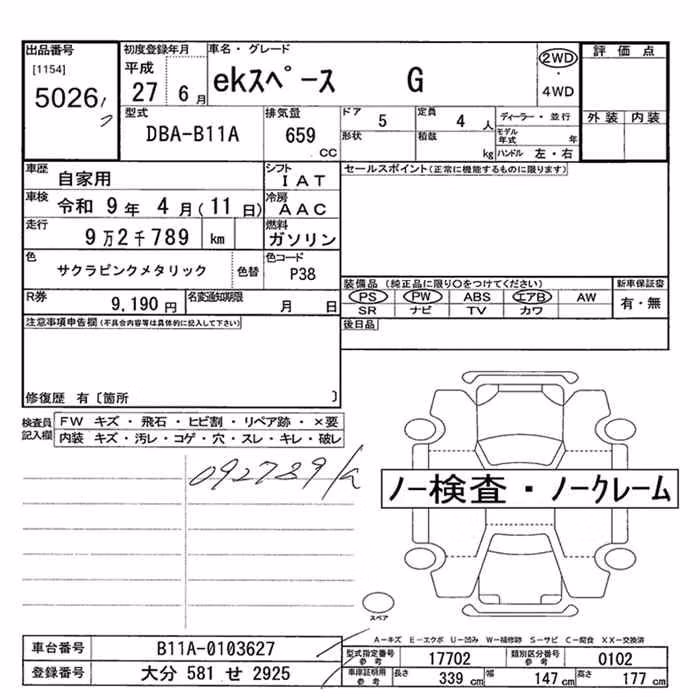 出品番号 初度登録年月 車名・グレード 評価点
[1154] 平成 ekスペース G 2WD
・
5026 27 6月 4WD
型式 排気量 ドア 5 定員 4人 ディーラー・並行 外装 内装
DBA-B11A 659 CC 形状 積載 kg モデル年式 年
ハンドル 左・右
車歴 自家用 シフト IAT セールスポイント(正常に機能するものに限ります)
車検 令和 9年 4月(11日) 冷房 AAC
走行 9万2千789 km 燃料 ガソリン
色 サクラピンクメタリック 色替 色コード P38
装備品 (純正品に限り○をつけてください) 新車保証書
R券 9,190円 名変通知期限 月 日 PS PW ABS エアB AW 有・無
SR ナビ TV カワ
注意事項申告欄(不具合内容等は具体的に記入して下さい) 後日品
修復歴 有〔箇所 〕
検査員記入欄 FW キズ・飛石・ヒビ割・リペア跡・×要
内装 キズ・汚レ・コゲ・穴・スレ・キレ・破レ
092789
ノー検査・ノークレーム
スペア
A-キズ E-エクボ U-凹み W-補修跡 S-サビ C-腐食 XX-交換済
車台番号 B11A-0103627 型式指定番号 参考 17702 類別区分番号 参考 0102
登録番号 大分 581 せ 2925 車庫証明用 参考 長さ 339 cm 幅 147 cm 高さ 177 cm